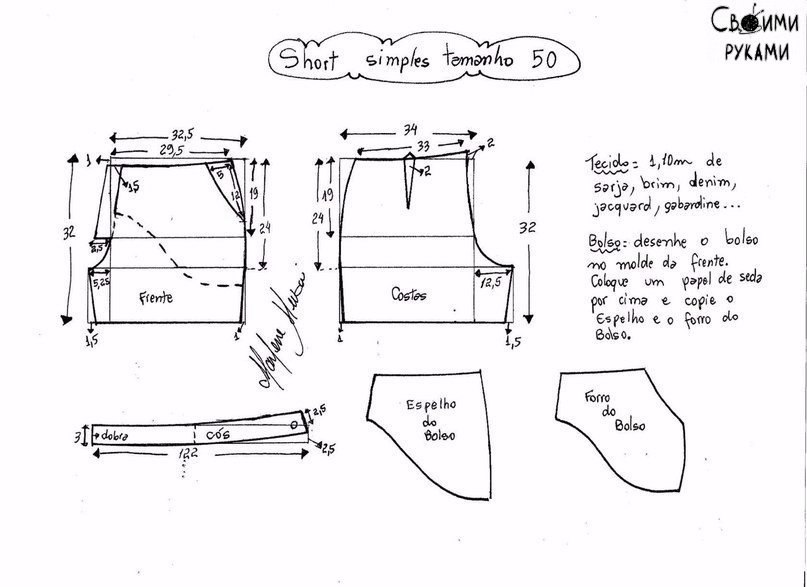 Своими
руками
Short simples tamanho 50
32,5
29,5
1
15
5
12
19
24
32
2,5
5,25
Frente
1,5
1
34
33
2
2
19
24
32
Costas
12,5
1
1,5
Tecido = 1,10m de
sarja, brim, denim,
jacquard, gabardine...
Bolso = desenhe o bolso
no molde da frente.
Coloque um papel de seda
por cima e copie o
Espelho e o forro do
Bolso.
3
dobra
cós
2,5
2,5
122
Espelho
do
Bolso
Forro
do
Bolso